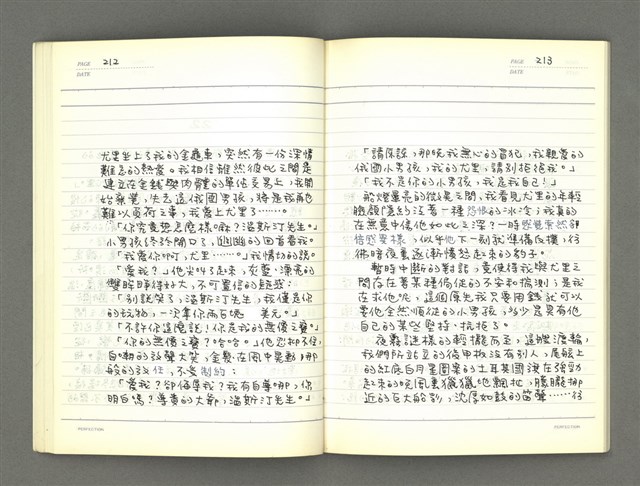 PAGE 212
DATE
尤里坐上了我的金龜車，突然有一份深情
難忘的熱愛。我相信雖然彼此之間是
建立在金錢與肉體的單位交易上，我開
始察覺，失去這俄國男孩，將是我再也
難以負荷之事，我愛上尤里了……。
「你究竟想怎麼樣嘛？溫斯汀先生。」
小男孩終於開口了，幽幽的回首看我。
「我愛你呵，尤里……。」我情切的說。
「愛我？」他尖叫了起來，灰藍、漂亮的
雙眸睜得好大，不可置信的疑惑：
「別說笑了，溫斯汀先生，我僅是你
的玩物，一次拿你兩百塊 美元。」
「不許你這麼說！你是我的無價之寶。」
「你的無價之寶？哈哈。」他忍抑不住，
自嘲的放聲大笑，金髮在風中晃動，那
般的放任，不受制約：
「愛我？卻侮辱我？我有自尊哪，你
明白嗎？尊貴的大爺，溫斯汀先生。」
PERFECTION
PAGE 213
DATE
「請原諒，那晚我無心的冒犯，我親愛的
俄國小男孩，我的尤里，請別拒絕我。」
「我不是你的小男孩，我是我自己！」
船燈暈亮的微光之間，我看見尤里的年輕
臉顏隱約泛著一種憤恨的冰冷；我真的
在無意中傷他如此之深？一時感覺突然卻
倍感異樣，似乎他下一刻就準備反撲，彷
彿暗夜裏逐漸憤怒起來的豹子。
暫時中斷的對話，竟使得我與尤里之
間存在著某種僵促的不安和揣測；是我
在求他吧，這個原先我只要用錢就可以
要他全然順從的小男孩，多少是異有他
自己的某些堅持、抗拒了。
夜霧謎樣的輕擁而至，這艘渡輪，
我們所站立的後甲板沒有別人，尾艇上
的紅底白月星圖案的土耳其國旗在強勁
起來的晚風裏獵獵地翻扯，朦朧挪
近的巨大船影，沈厚如鼓的笛聲……彷
PERFECTION